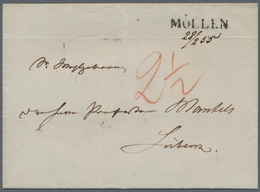 MÖLLEN
28/2 55
2½
Sr. Wohlgeboren
Herrn Professor Mantels
Lübeck